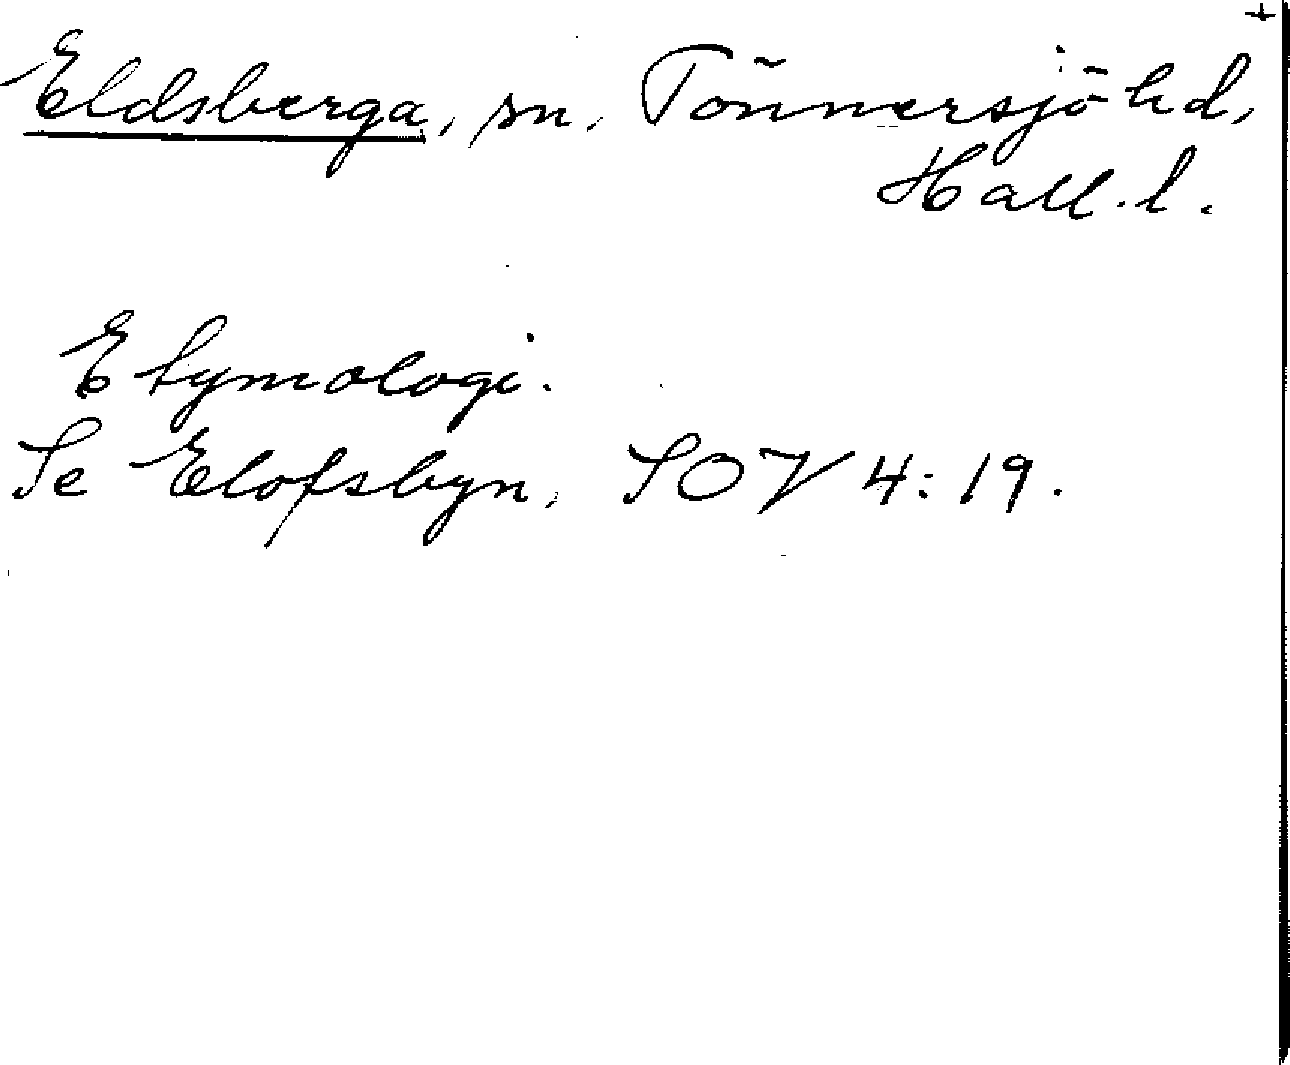 Eldsberga, sn, Tönnersjö hd,
Hall. l.
Etymologi.
Se Elofsbyn, SOV 4:19.